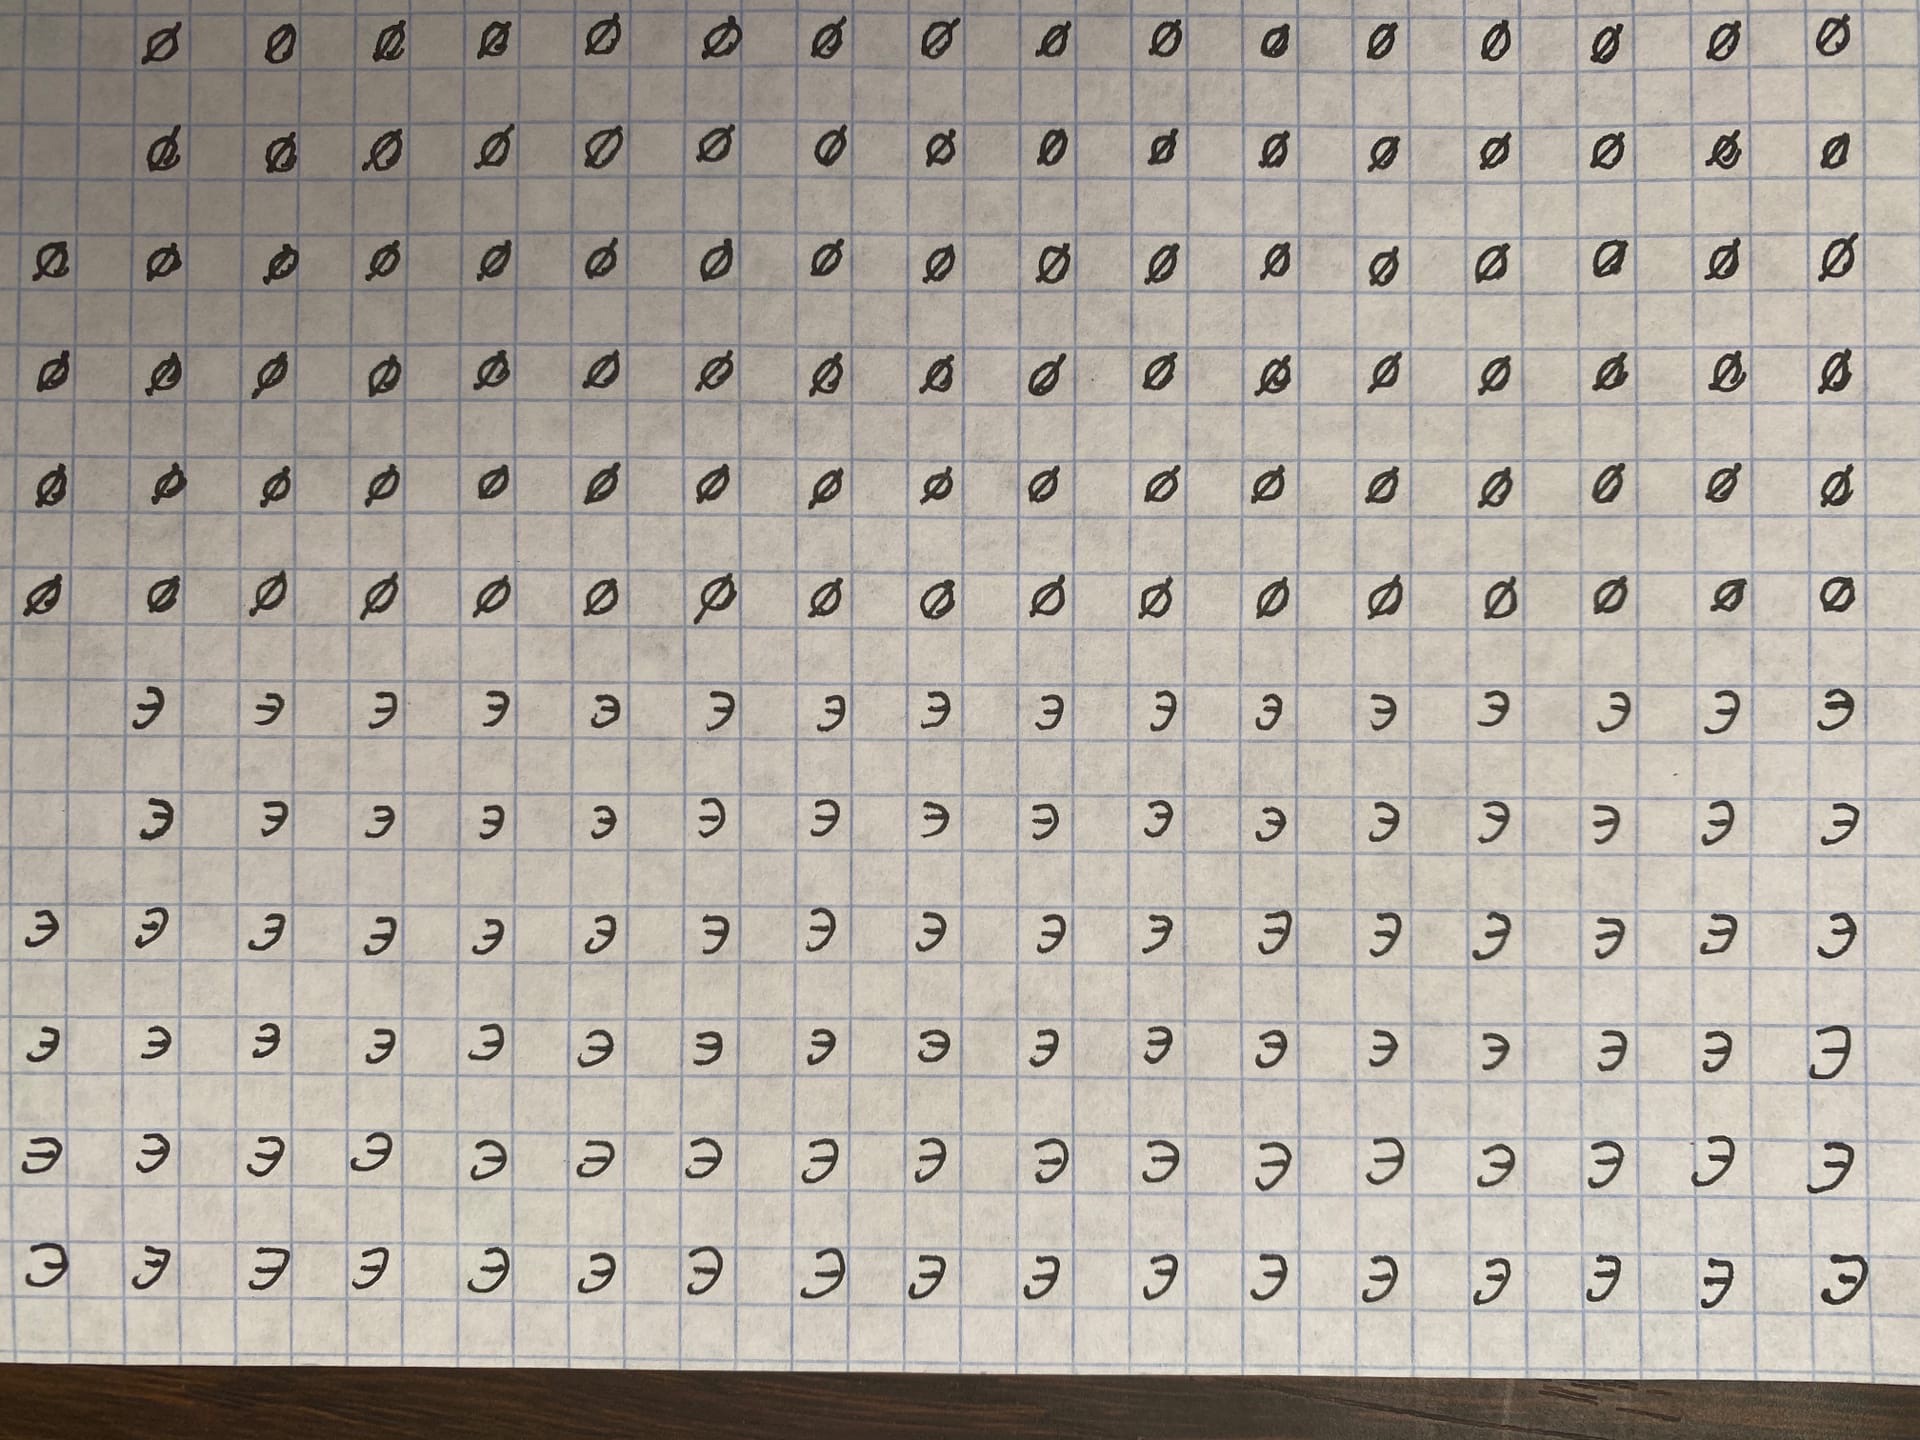 Ø Ø Ø Ø Ø Ø Ø Ø Ø Ø Ø Ø Ø Ø Ø Ø
Ø Ø Ø Ø Ø Ø Ø Ø Ø Ø Ø Ø Ø Ø Ø Ø
Ø Ø Ø Ø Ø Ø Ø Ø Ø Ø Ø Ø Ø Ø Ø Ø Ø
Ø Ø Ø Ø Ø Ø Ø Ø Ø Ø Ø Ø Ø Ø Ø Ø Ø
Ø Ø Ø Ø Ø Ø Ø Ø Ø Ø Ø Ø Ø Ø Ø Ø Ø
Ø Ø Ø Ø Ø Ø Ø Ø Ø Ø Ø Ø Ø Ø Ø Ø Ø
Э Э Э Э Э Э Э Э Э Э Э Э Э Э Э Э
Э Э Э Э Э Э Э Э Э Э Э Э Э Э Э Э
Э Э Э Э Э Э Э Э Э Э Э Э Э Э Э Э Э
Э Э Э Э Э Э Э Э Э Э Э Э Э Э Э Э Э
Э Э Э Э Э Э Э Э Э Э Э Э Э Э Э Э Э
Э Э Э Э Э Э Э Э Э Э Э Э Э Э Э Э Э